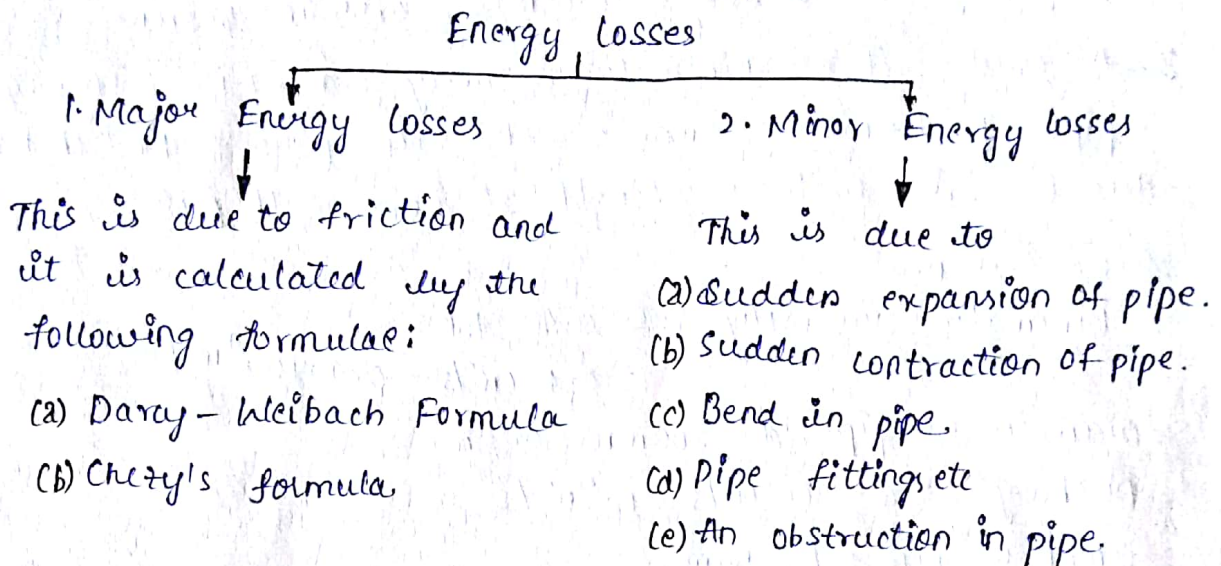 Energy losses
1. Major Energy losses
This is due to friction and
it is calculated by the
following formulae:
(a) Darcy - Weibach Formula
(b) Chezy's formula
2. Minor Energy losses
This is due to
(a) Sudden expansion of pipe.
(b) Sudden contraction of pipe.
(c) Bend in pipe.
(d) Pipe fittings etc
(e) An obstruction in pipe.